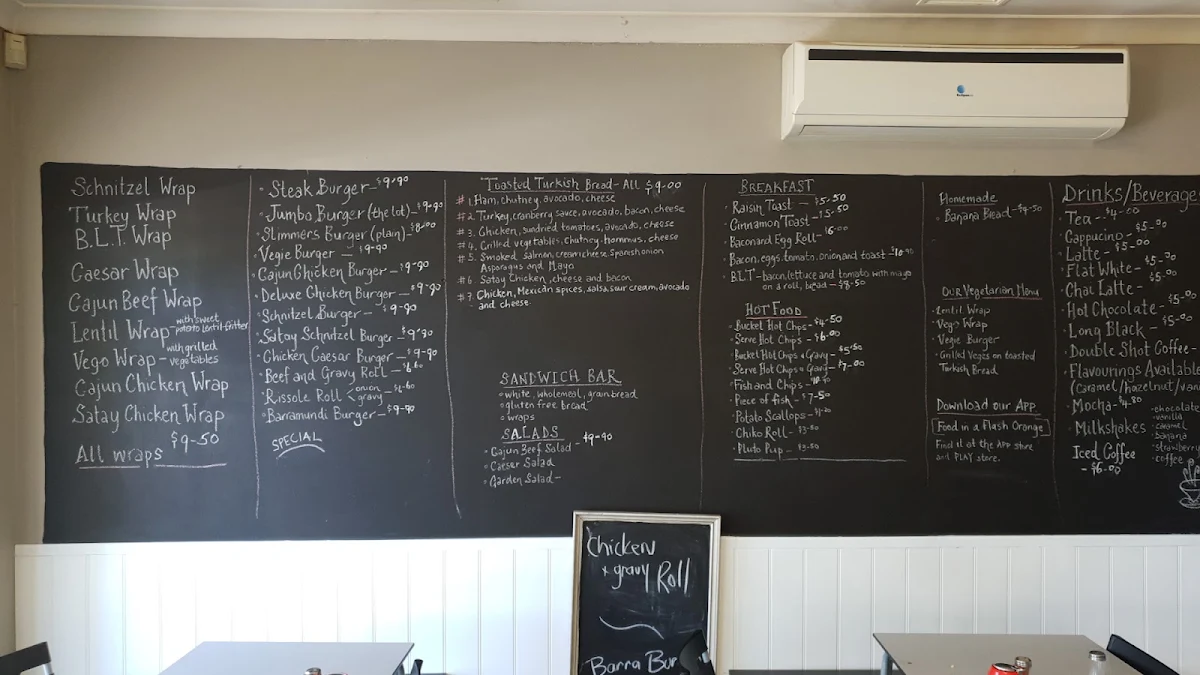 Schnitzel Wrap
Turkey Wrap
B.L.T. Wrap
Caesar Wrap
Cajun Beef Wrap
Lentil Wrap - with sweet potato lentil fritter
Vego Wrap - with grilled vegetables
Cajun Chicken Wrap
Satay Chicken Wrap
$9-50
All wraps
Steak Burger - $9-90
Jumbo Burger (the lot) - $9-90
Slimmers Burger (plain) - $8-00
Vegie Burger - $9-90
Cajun Chicken Burger - $9-90
Deluxe Chicken Burger - $9-90
Schnitzel Burger - $9-90
Satay Schnitzel Burger - $9-90
Chicken Caesar Burger - $9-90
Beef and Gravy Roll -
Rissole Roll < onion gravy
Barramundi Burger - $9-90
SPECIAL
Toasted Turkish Bread - ALL $9-00
#1. Ham, chutney, avocado, cheese
#2. Turkey, cranberry sauce, avocado, bacon, cheese
#3. Chicken, sundried tomatoes, avocado, cheese
#4. Grilled vegetables, chutney, hommus, cheese
#5. Smoked salmon, cream cheese, spanish onion
Asparagus and Mayo
#6 Satay Chicken, cheese and bacon
#7. Chicken, Mexican spices, salsa, sour cream, avocado
and cheese.
SANDWICH BAR
white, wholemeal, grain bread
gluten free bread
wraps
SALADS
Cajun Beef Salad - $9-90
Caeser Salad
Garden Salad -
BREAKFAST
Raisin Toast - $5-50
Cinnamon Toast - $5-50
Bacon and Egg Roll - $6-00
Bacon, eggs, tomato, onion and toast - $10-90
B.L.T - bacon, lettuce and tomato with mayo
on a roll, bread - $8-50
HOT FOOD
Bucket Hot Chips - $4-50
Serve Hot Chips - $6-00
Bucket Hot Chips + Gravy - $5-50
Serve Hot Chips + Gravy - $7-00
Fish and Chips -
Piece of fish - $7-50
Potato Scallops -
Chiko Roll -
Pluto Pup -
Homemade
Banana Bread - $4-50
OUR Vegetarian Menu
Lentil Wrap
Vego Wrap
Vegie Burger
Grilled Veges on toasted
Turkish Bread
Download our APP
Food in a Flash Orange
Find it at the APP store
and PLAY store.
Drinks/Beverage
Tea - $4-00
Cappucino - $5-00
Latte - $5-00
Flat White - $5-00
Chai Latte - $5-00
Hot Chocolate - $5-00
Long Black - $5-00
Double Shot Coffee -
Flavourings Available
(Caramel/hazelnut/van
Mocha - $4-80
Milkshakes
chocolate
vanilla
caramel
banana
strawberry
coffee
Iced Coffee
- $6-00
Chicken
+ gravy Roll
Barra Bur